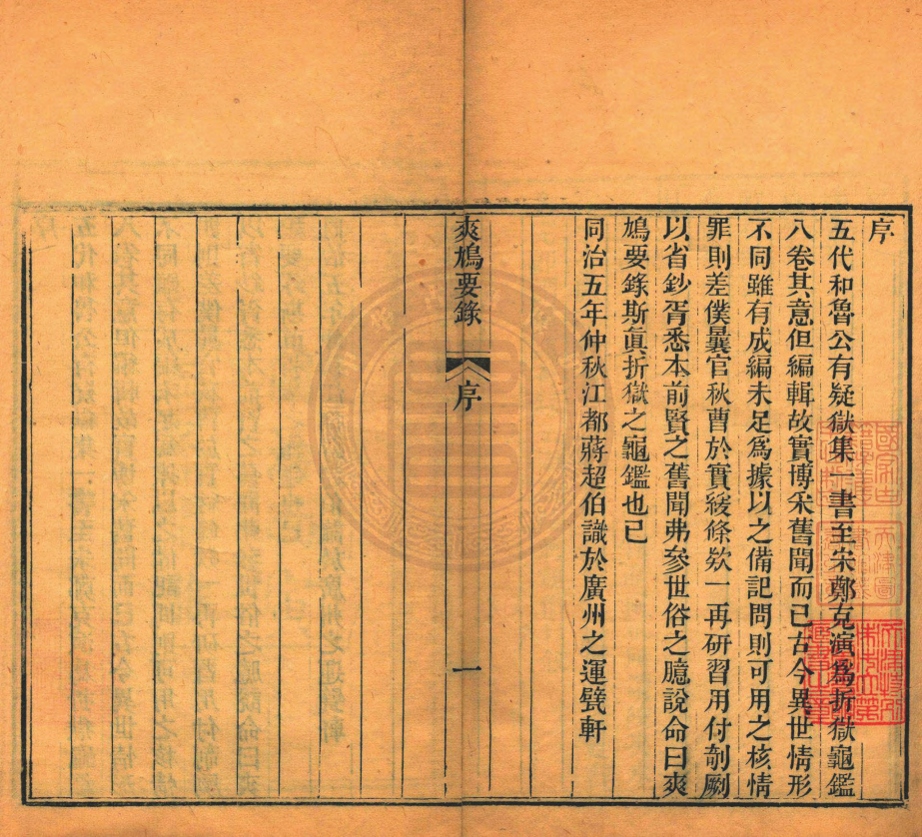 序
五代和魯公有疑獄集一書至宋鄭克演爲折獄龜鑑
八卷其意但編輯故實博采舊聞而已古今異世情形
不同雖有成編未足爲據以之備記問則可用之核情
罪則差僕曩官秋曹於實緩條欵一再研習用付剞劂
以省鈔胥悉本前賢之舊聞弗參世俗之臆說命曰爽
鳩要錄斯眞折獄之龜鑑也已
同治五年仲秋江都蔣超伯識於廣州之運甓軒
爽鳩要錄
序
一